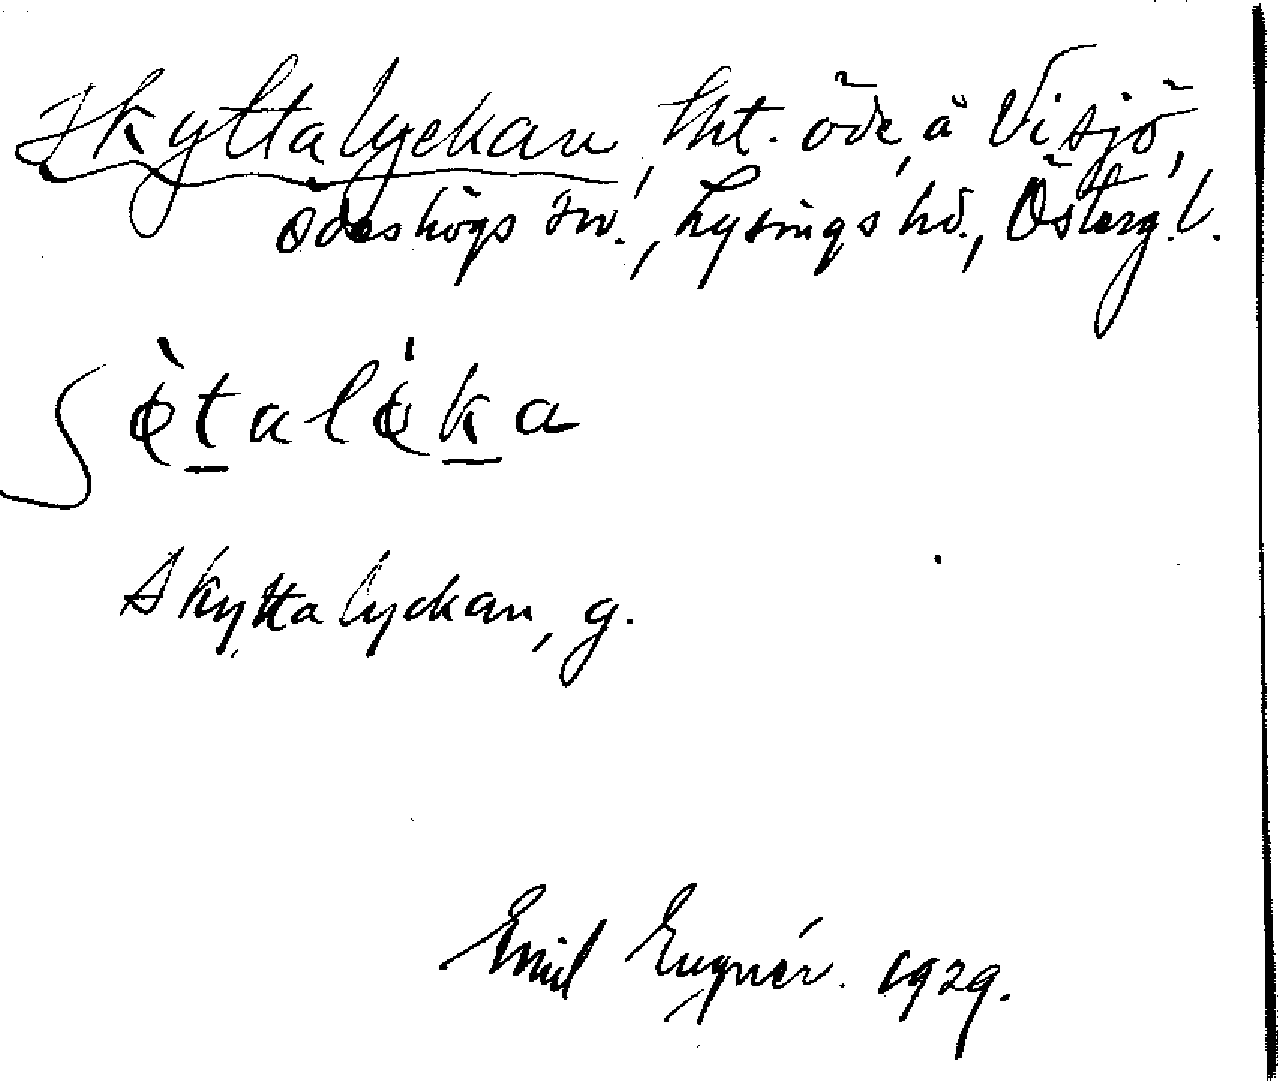 Skyttalyckan, tht. öde, å Visjö,
Ödeshögs sn., Lysings hd., Österg. l.
ʃø̀t̲alǿk̲a
Skyttalyckan, g.
Emil Engnér. 1929.